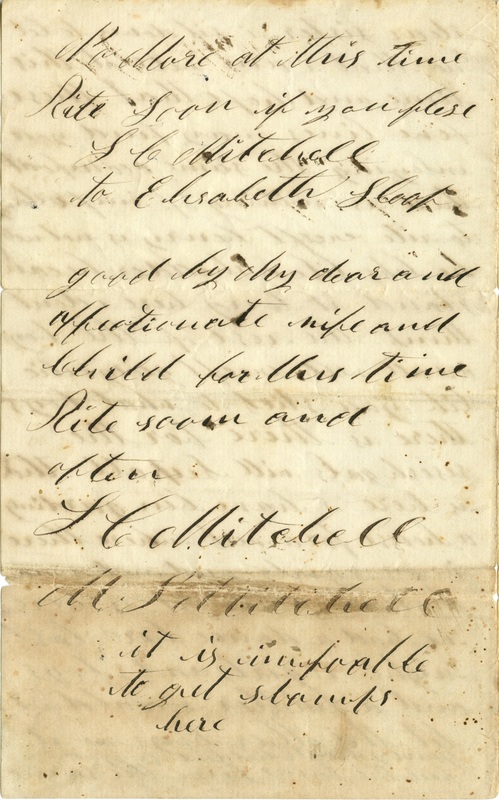 No More at this time
Rite Soon if you plese
L C Mitchell
to Elisabeth Sloop
good by My dear and
affectionate wife and
Child for this time
Rite soon and
often
L C Mitchell
M L Mitchell
it is imposable
to get stamps
here